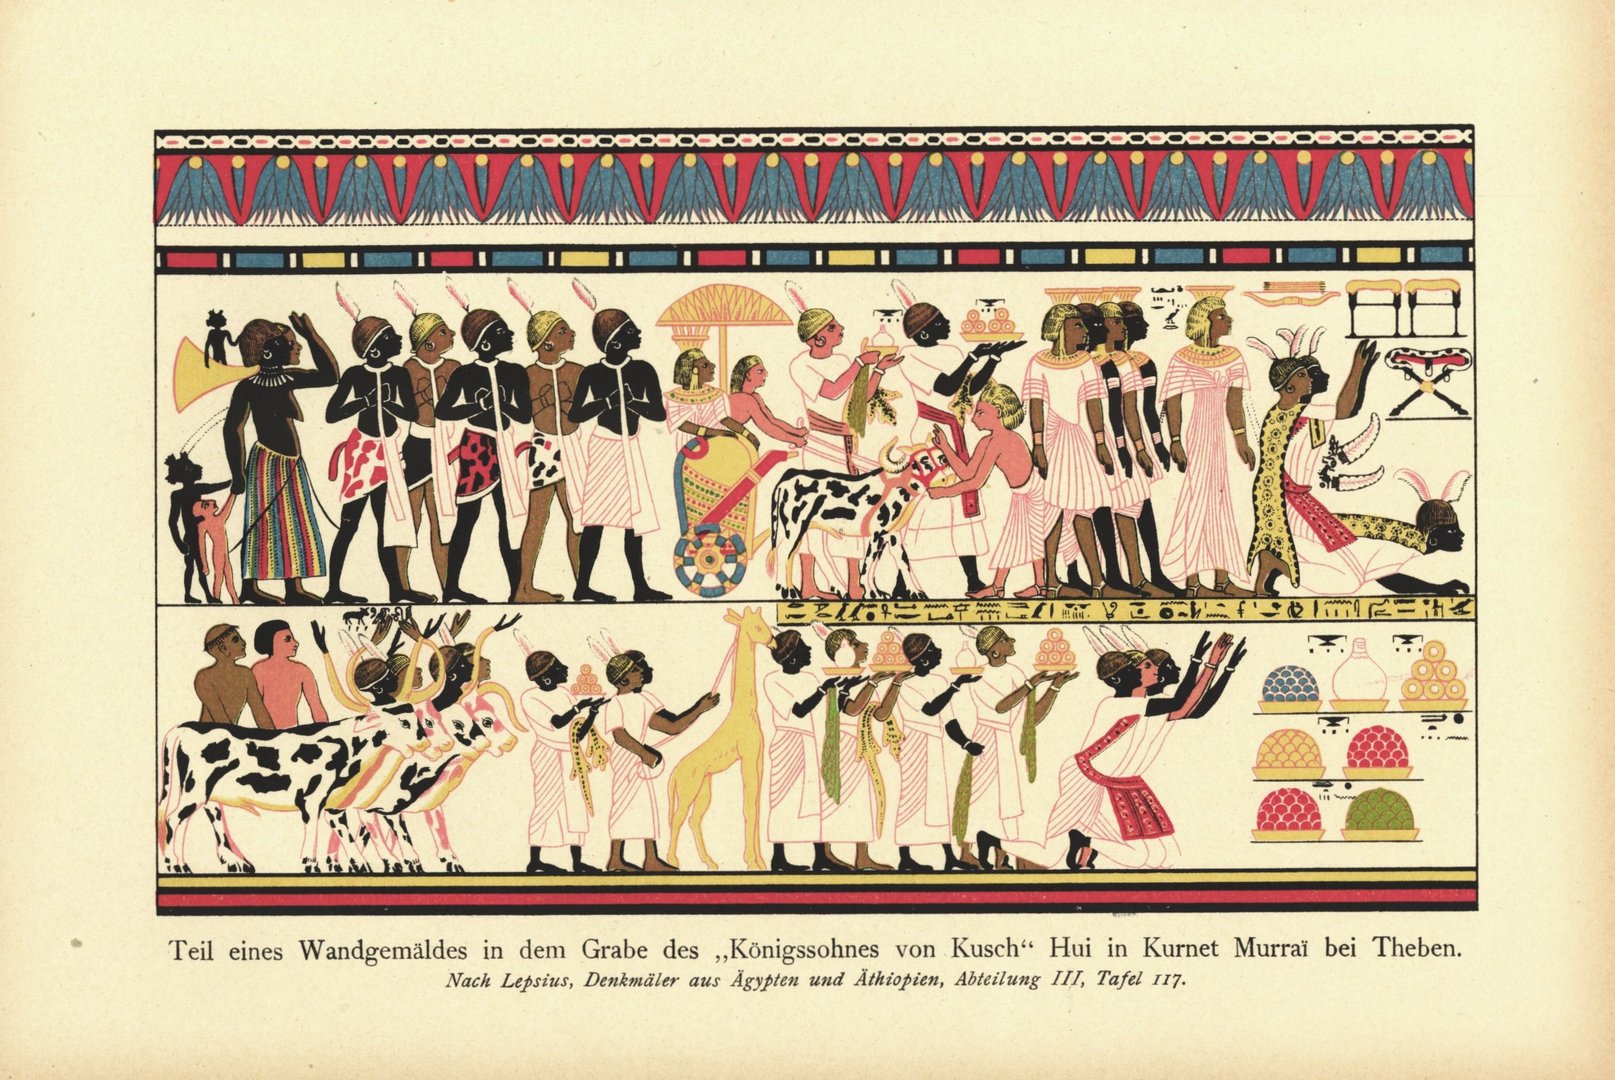 Teil eines Wandgemäldes in dem Grabe des „Königssohnes von Kusch“ Hui in Kurnet Murraï bei Theben.
Nach Lepsius, Denkmäler aus Ägypten und Äthiopien, Abteilung III, Tafel 117.